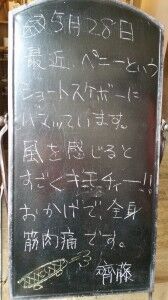 5月28日
最近、ペニーという
ショートスケボーに
ハマッています。
風を感じると
すごくキモチィー!!
おかげで、全身
筋肉痛です。
齊藤